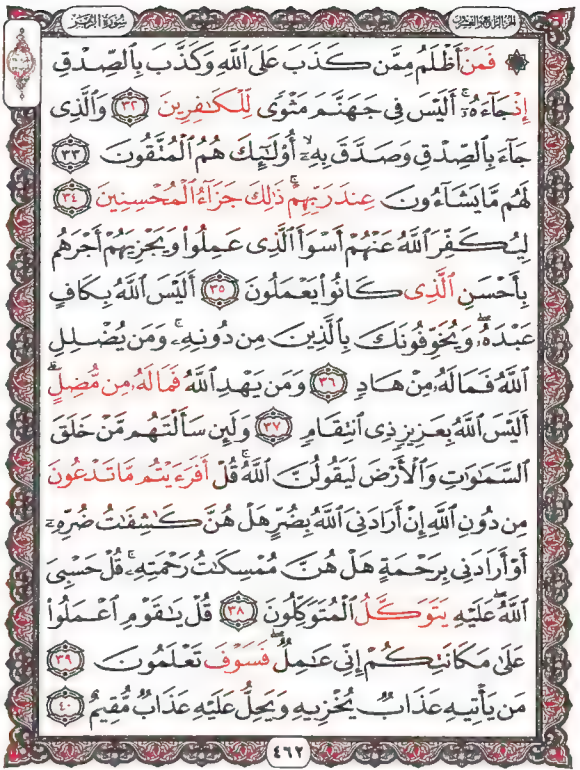 الجزء الرابع والعشرون
سورة الزمر
۞ فَمَنْ أَظْلَمُ مِمَّن كَذَبَ عَلَى ٱللَّهِ وَكَذَّبَ بِٱلصِّدْقِ
إِذْ جَآءَهُۥٓ ۚ أَلَيْسَ فِى جَهَنَّمَ مَثْوًى لِّلْكَٰفِرِينَ ٣٢ وَٱلَّذِى
جَآءَ بِٱلصِّدْقِ وَصَدَّقَ بِهِۦٓ ۙ أُو۟لَٰٓئِكَ هُمُ ٱلْمُتَّقُونَ ٣٣
لَهُم مَّا يَشَآءُونَ عِندَ رَبِّهِمْ ۚ ذَٰلِكَ جَزَآءُ ٱلْمُحْسِنِينَ ٣٤
لِيُكَفِّرَ ٱللَّهُ عَنْهُمْ أَسْوَأَ ٱلَّذِى عَمِلُوا۟ وَيَجْزِيَهُمْ أَجْرَهُم
بِأَحْسَنِ ٱلَّذِى كَانُوا۟ يَعْمَلُونَ ٣٥ أَلَيْسَ ٱللَّهُ بِكَافٍ
عَبْدَهُۥ ۖ وَيُخَوِّفُونَكَ بِٱلَّذِينَ مِن دُونِهِۦ ۚ وَمَن يُضْلِلِ
ٱللَّهُ فَمَا لَهُۥ مِنْ هَادٍ ٣٦ وَمَن يَهْدِ ٱللَّهُ فَمَا لَهُۥ مِن مُّضِلٍّ ۗ
أَلَيْسَ ٱللَّهُ بِعَزِيزٍ ذِى ٱنتِقَامٍ ٣٧ وَلَئِن سَأَلْتَهُم مَّنْ خَلَقَ
ٱلسَّمَٰوَٰتِ وَٱلْأَرْضَ لَيَقُولُنَّ ٱللَّهُ ۚ قُلْ أَفَرَءَيْتُم مَّا تَدْعُونَ
مِن دُونِ ٱللَّهِ إِنْ أَرَادَنِىَ ٱللَّهُ بِضُرٍّ هَلْ هُنَّ كَٰشِفَٰتُ ضُرِّهِۦٓ
أَوْ أَرَادَنِى بِرَحْمَةٍ هَلْ هُنَّ مُمْسِكَٰتُ رَحْمَتِهِۦ ۚ قُلْ حَسْبِىَ
ٱللَّهُ ۖ عَلَيْهِ يَتَوَكَّلُ ٱلْمُتَوَكِّلُونَ ٣٨ قُلْ يَٰقَوْمِ ٱعْمَلُوا۟
عَلَىٰ مَكَانَتِكُمْ إِنِّى عَٰمِلٌ ۖ فَسَوْفَ تَعْلَمُونَ ٣٩
مَن يَأْتِيهِ عَذَابٌ يُخْزِيهِ وَيَحِلُّ عَلَيْهِ عَذَابٌ مُّقِيمٌ ٤٠
٤٦٢